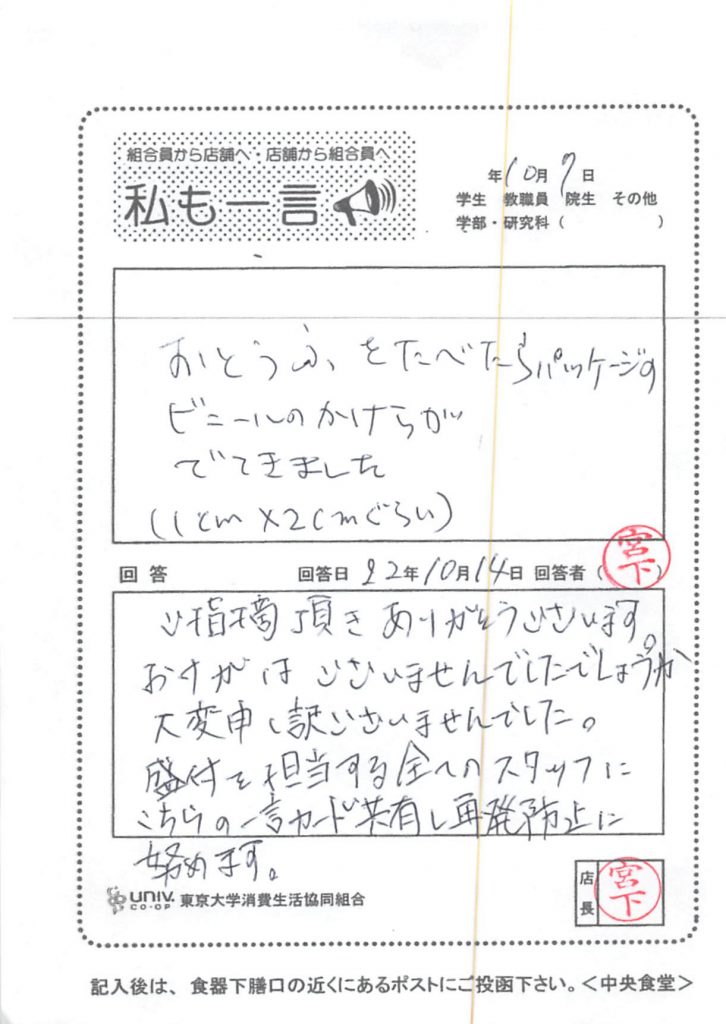 組合員から店舗へ・店舗から組合員へ
私も一言
年10月7日
学生 教職員 院生 その他
学部・研究科（ ）
おとうふをたべたらパッケージの
ビニールのかけらが
でてきました
(1cm×2cmぐらい)
回答 回答日 22年10月14日 回答者（宮下）
ご指摘頂きありがとうございます。
おけがはございませんでしたでしょうか
大変申し訳ございませんでした。
盛付を担当する全てのスタッフに
こちらの一言カード共有し再発防止に
努めます。
UNIV. CO-OP 東京大学消費生活協同組合
店長 宮下
記入後は、食器下膳口の近くにあるポストにご投函下さい。＜中央食堂＞